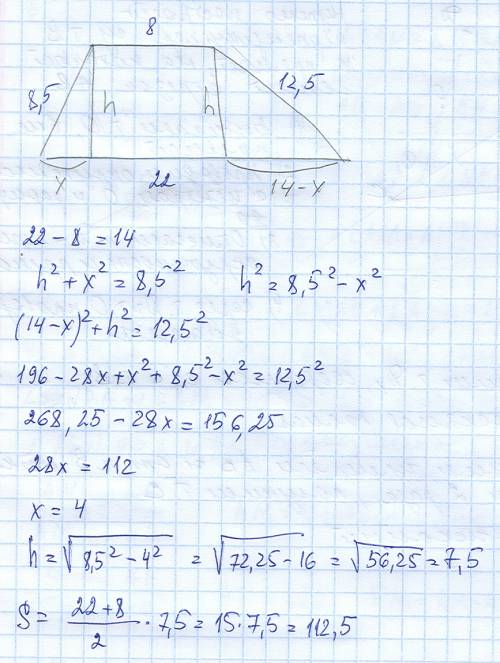 8
8,5 h h 12,5
x 22 14-x
22-8=14
h²+x²=8,5² h²=8,5²-x²
(14-x)²+h²=12,5²
196-28x+x²+8,5²-x²=12,5²
268,25-28x=156,25
28x=112
x=4
h=√(8,5²-4²) =√(72,25-16) =√56,25=7,5
S= (22+8)/2 · 7,5=15·7,5=112,5